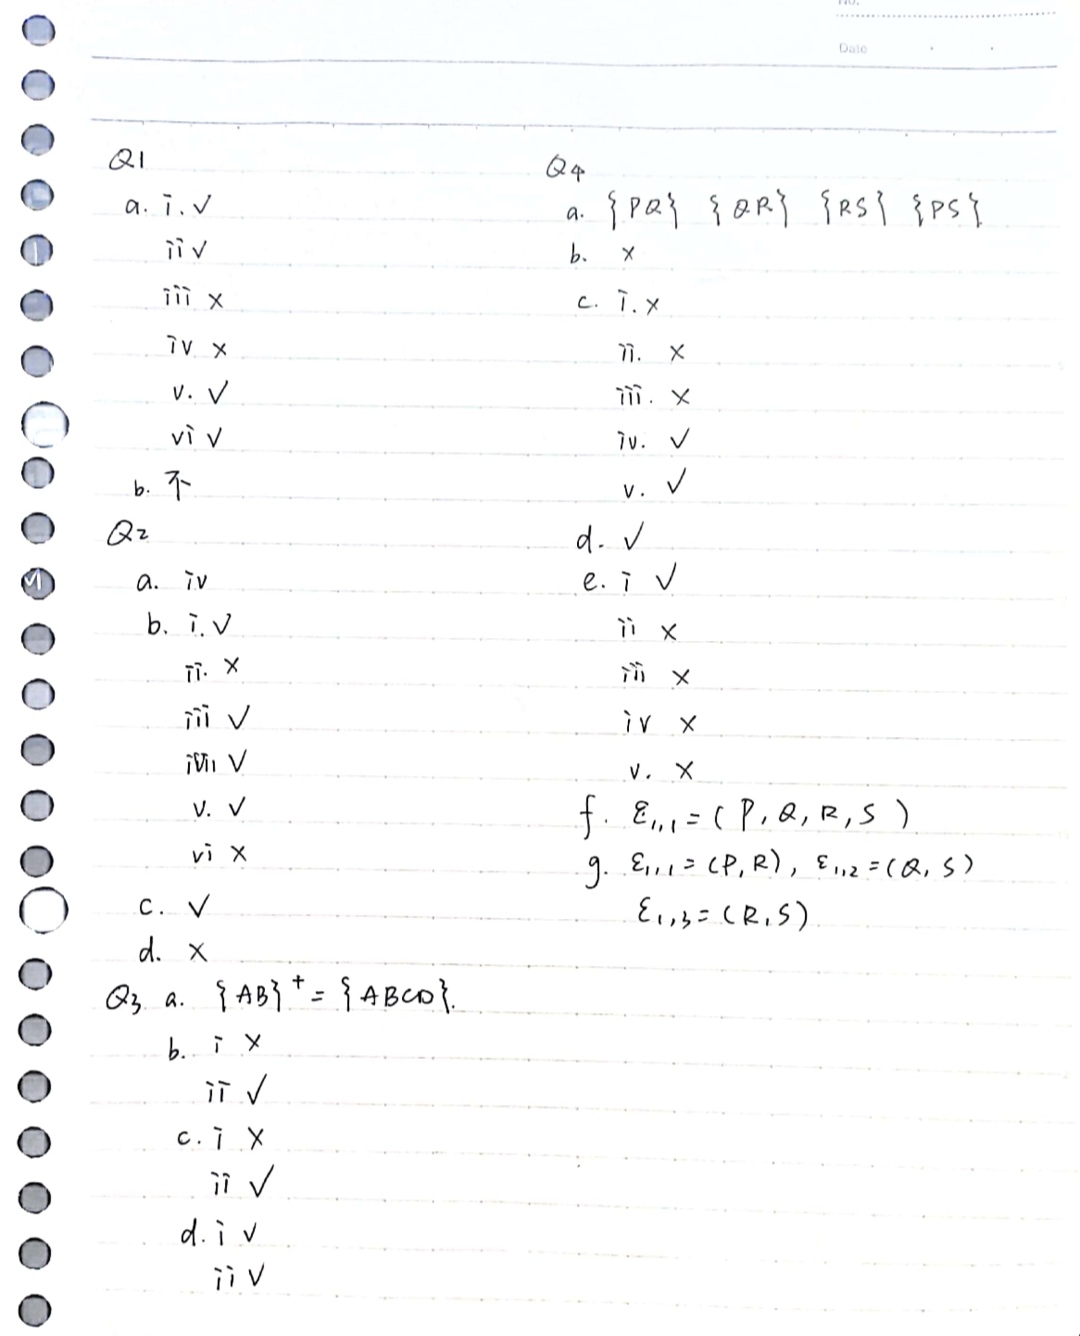 No.
Date
Q1
a. i. ✓
ii ✓
iii ×
iv ×
v. ✓
vi ✓
b. 不
Q2
a. iv
b. i. ✓
ii. ×
iii ✓
✓
v. ✓
vi ×
c. ✓
d. ×
Q3 a. {AB}⁺ = {ABCD}.
b. i ×
ii ✓
c. i ×
ii ✓
d. i ✓
ii ✓
Q4
a. {PQ} {QR} {RS} {PS}
b. ×
c. i. ×
ii. ×
iii. ×
iv. ✓
v. ✓
d. ✓
e. i ✓
ii ×
iii ×
iv ×
v. ×
f. ε₁,₁ = (P, Q, R, S)
g. ε₁,₁ = (P, R), ε₁,₂ = (Q, S)
ε₁,₃ = (R, S)